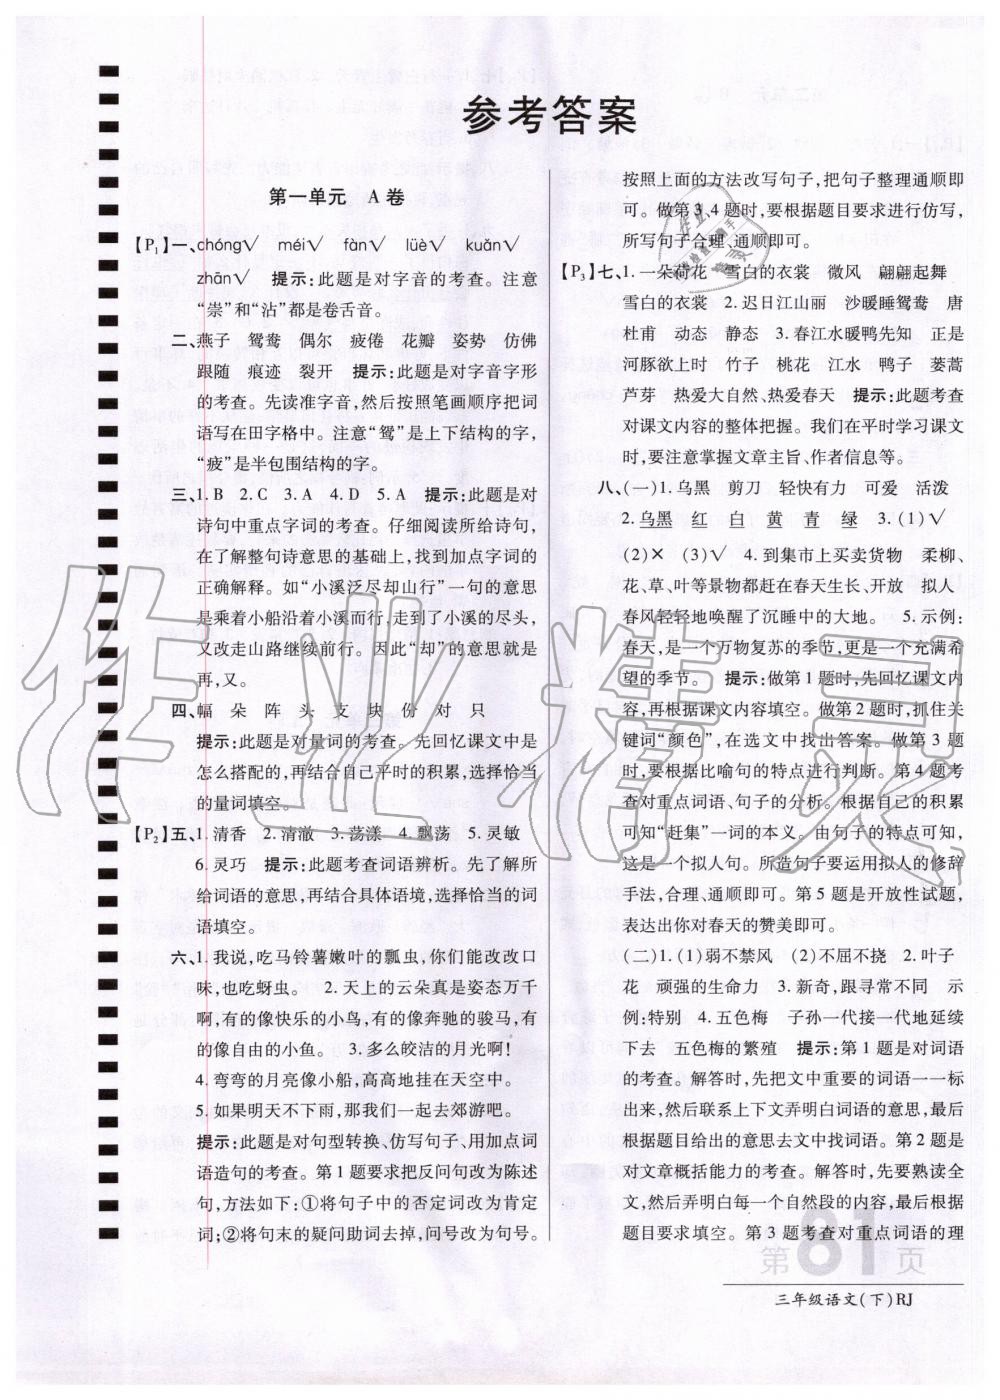 参考答案
第一单元 A卷
【P₁】一、chóng√ méi√ fàn√ lüè√ kuǎn√
zhān√ 提示:此题是对字音的考查。注意
“崇”和“沾”都是卷舌音。
二、燕子 鸳鸯 偶尔 疲倦 花瓣 姿势 仿佛
跟随 痕迹 裂开 提示:此题是对字音字形
的考查。先读准字音,然后按照笔画顺序把词
语写在田字格中。注意“鸳”是上下结构的字,
“疲”是半包围结构的字。
三、1. B 2. C 3. A 4. D 5. A 提示:此题是对
诗句中重点字词的考查。仔细阅读所给诗句,
在了解整句诗意思的基础上,找到加点字词的
正确解释。如“小溪泛尽却山行”一句的意思
是乘着小船沿着小溪而行,走到了小溪的尽头,
又改走山路继续前行。因此“却”的意思就是
再,又。
四、幅 朵 阵 头 支 块 份 对 只
提示:此题是对量词的考查。先回忆课文中是
怎么搭配的,再结合自己平时的积累,选择恰当
的量词填空。
【P₂】五、1. 清香 2. 清澈 3. 荡漾 4. 飘荡 5. 灵敏
6. 灵巧 提示:此题考查词语辨析。先了解所
给词语的意思,再结合具体语境,选择恰当的词
语填空。
六、1. 我说,吃马铃薯嫩叶的瓢虫,你们能改改口
味,也吃蚜虫。 2. 天上的云朵真是姿态万千
啊,有的像快乐的小鸟,有的像奔驰的骏马,有
的像自由的小鱼。 3. 多么皎洁的月光啊!
4. 弯弯的月亮像小船,高高地挂在天空中。
5. 如果明天不下雨,那我们一起去郊游吧。
提示:此题是对句型转换、仿写句子、用加点词
语造句的考查。第1题要求把反问句改为陈述
句,方法如下:①将句子中的否定词改为肯定
词;②将句末的疑问助词去掉,问号改为句号。
按照上面的方法改写句子,把句子整理通顺即
可。做第3、4题时,要根据题目要求进行仿写,
所写句子合理、通顺即可。
【P₃】七、1. 一朵荷花 雪白的衣裳 微风 翩翩起舞
雪白的衣裳 2. 迟日江山丽 沙暖睡鸳鸯 唐
杜甫 动态 静态 3. 春江水暖鸭先知 正是
河豚欲上时 竹子 桃花 江水 鸭子 蒌蒿
芦芽 热爱大自然、热爱春天 提示:此题考查
对课文内容的整体把握。我们在平时学习课文
时,要注意掌握文章主旨、作者信息等。
八、(一)1. 乌黑 剪刀 轻快有力 可爱 活泼
2. 乌黑 红 白 黄 青 绿 3. (1)√
(2)× (3)√ 4. 到集市上买卖货物 柔柳、
花、草、叶等景物都赶在春天生长、开放 拟人
春风轻轻地唤醒了沉睡中的大地。 5. 示例:
春天,是一个万物复苏的季节,更是一个充满希
望的季节。 提示:做第1题时,先回忆课文内
容,再根据课文内容填空。做第2题时,抓住关
键词“颜色”,在选文中找出答案。做第3题
时,要根据比喻句的特点进行判断。第4题考
查对重点词语、句子的分析。根据自己的积累
可知“赶集”一词的本义。由句子的特点可知,
这是一个拟人句。所造句子要运用拟人的修辞
手法,合理、通顺即可。第5题是开放性试题,
表达出你对春天的赞美即可。
(二)1. (1)弱不禁风 (2)不屈不挠 2. 叶子
花 顽强的生命力 3. 新奇,跟寻常不同 示
例:特别 4. 五色梅 子孙一代接一代地延续
下去 五色梅的繁殖 提示:第1题是对词语
的考查。解答时,先把文中重要的词语一一标
出来,然后联系上下文弄明白词语的意思,最后
根据题目给出的意思去文中找词语。第2题是
对文章概括能力的考查。解答时,先要熟读全
文,然后弄明白每一个自然段的内容,最后根据
题目要求填空。第3题考查对重点词语的理
第81页
三年级语文(下)RJ
作业精灵